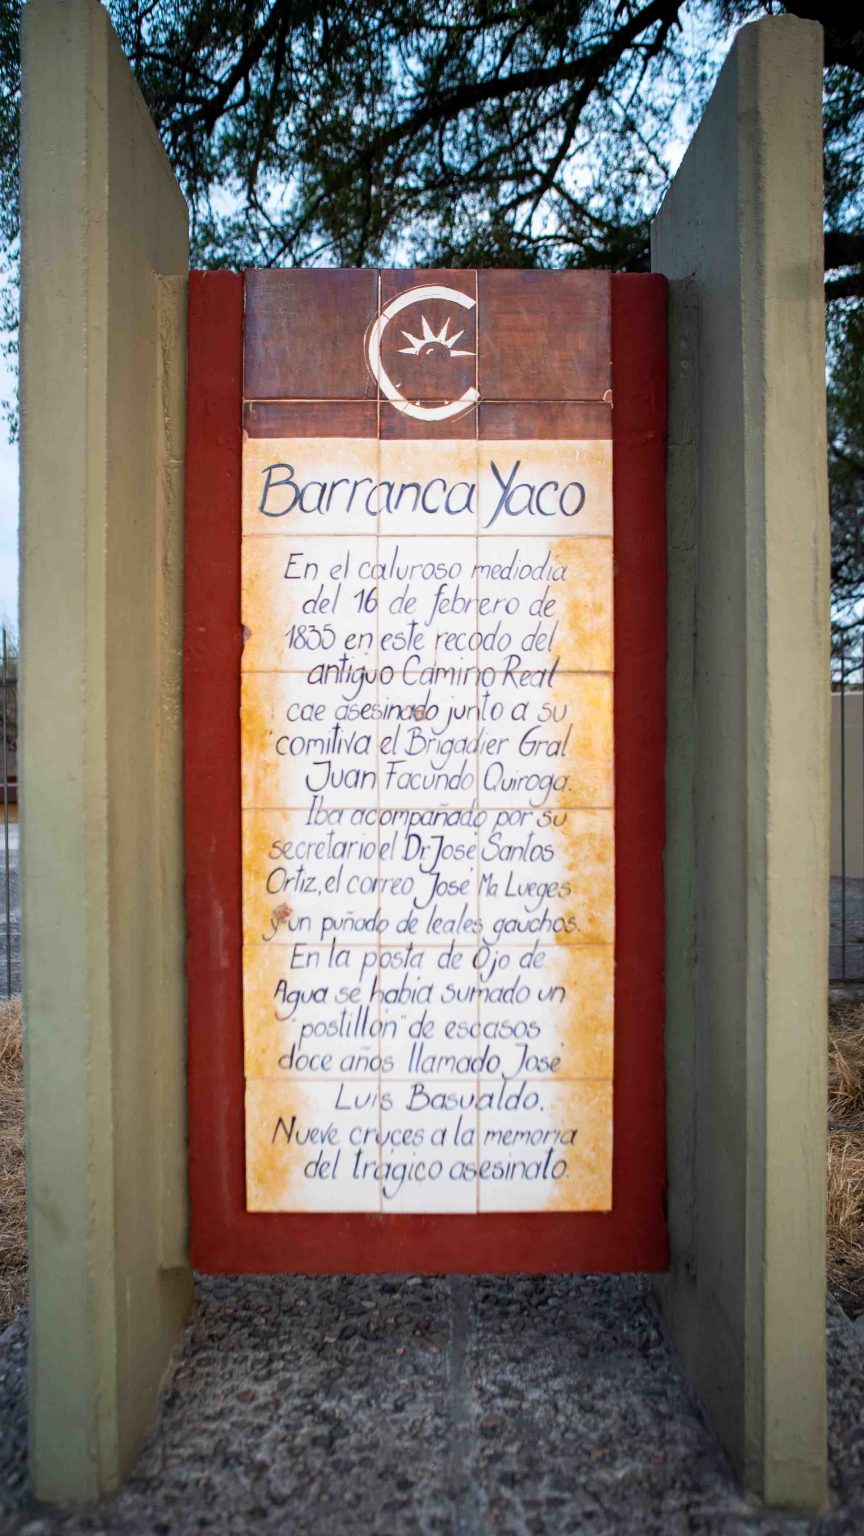 Barranca Yaco
En el caluroso mediodía
del 16 de febrero de
1835 en este recodo del
antiguo Camino Real
cae asesinado junto a su
comitiva el Brigadier Gral
Juan Facundo Quiroga.
Iba acompañado por su
secretario el Dr José Santos
Ortiz, el correo José Ma Lueges
y un puñado de leales gauchos.
En la posta de Ojo de
Agua se había sumado un
"postillón" de escasos
doce años llamado José
Luis Basualdo.
Nueve cruces a la memoria
del trágico asesinato.